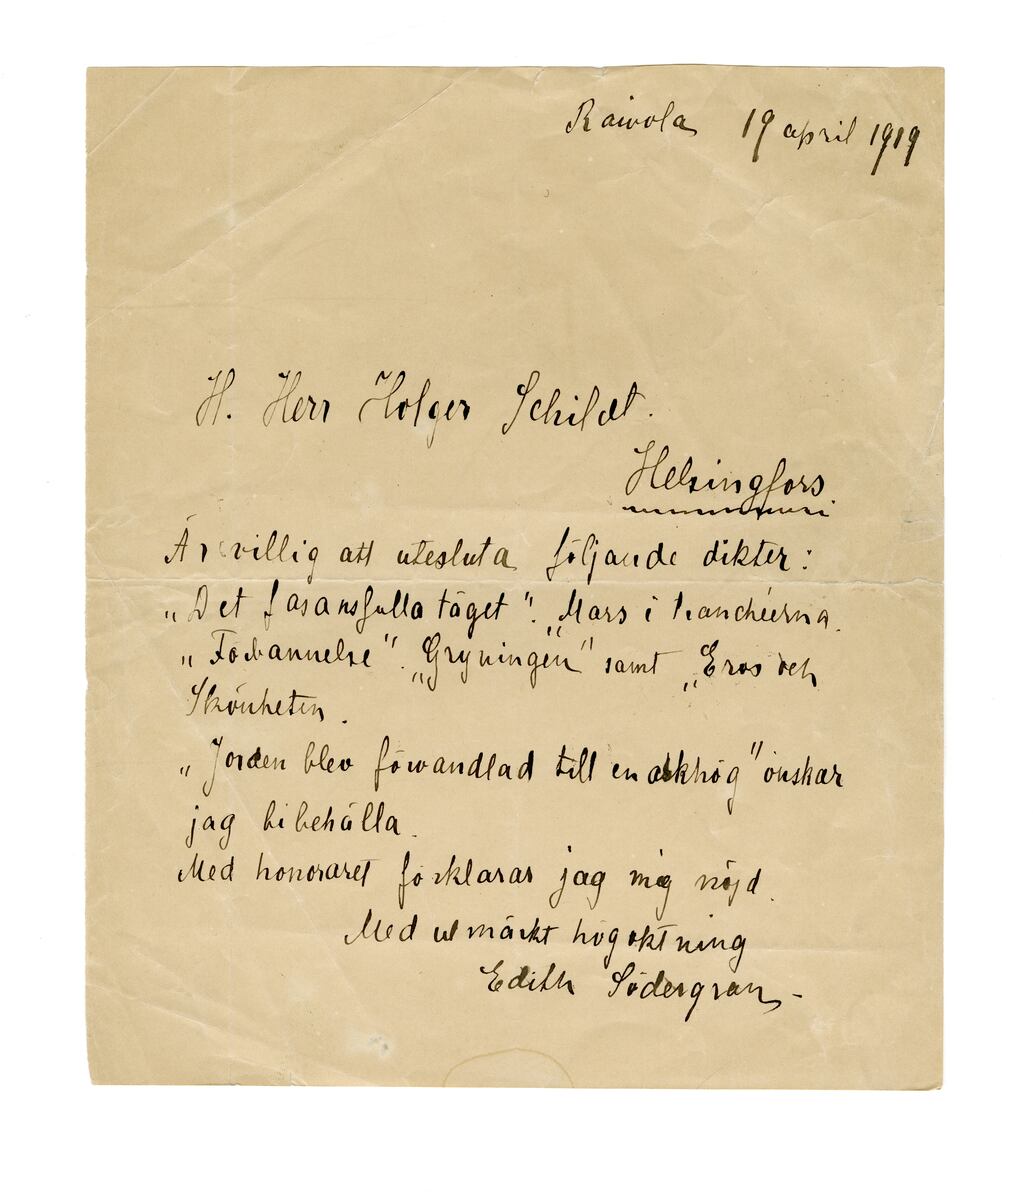 Raivola 19 april 1919
H. Herr Holger Schildt.
Helsingfors
Är villig att utesluta följande dikter:
„Det fasansfulla tåget". „Mars i
„Förbannelse". „Gryningen" samt „Eros och
Skönheten.
„Jorden blev förvandlad till en askhög" önskar
jag bibehålla.
Med honoraret förklarar jag mig nöjd.
Med utmärkt högaktning
Edith Södergran